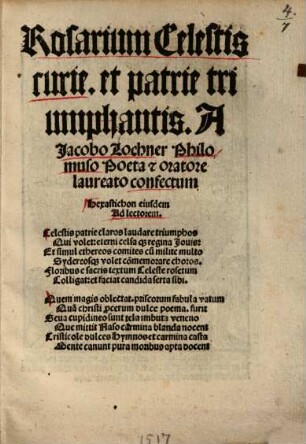 4/7
Rosarium Celestis
curie. et patrie tri
umphantis. A
Jacobo Locher Philo
muso Poeta ⁊ oratore
laureato confectum
Hexastichon eiusdem
Ad lectorem.
Celestis patrie claros laudare triumphos
Qui volet: eterni celsa qȝ regina Jouis:
Et simul ethereos comites cũ milite multo
Sydereosqȝ volet cõmemorare choros.
Floribus e sacris textum Celeste rosetum
Colligat: et faciat candida serta sibi.
Quem magis oblectat priscorum fabula vatum
Quã christi procerum dulce poema. furit
Seua cupidineo sunt illa imbuta veneno
Que mittit Naso carmina blanda nocent
Cristicole dulces Hymnos et carmina casta
Mente canunt pura moribus apta docent
1517